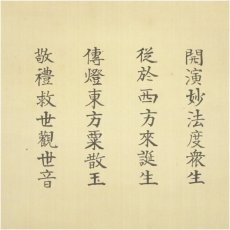 開演妙法度衆生
從於西方來誕生
傳燈東方粟散王
敬禮救世觀世音